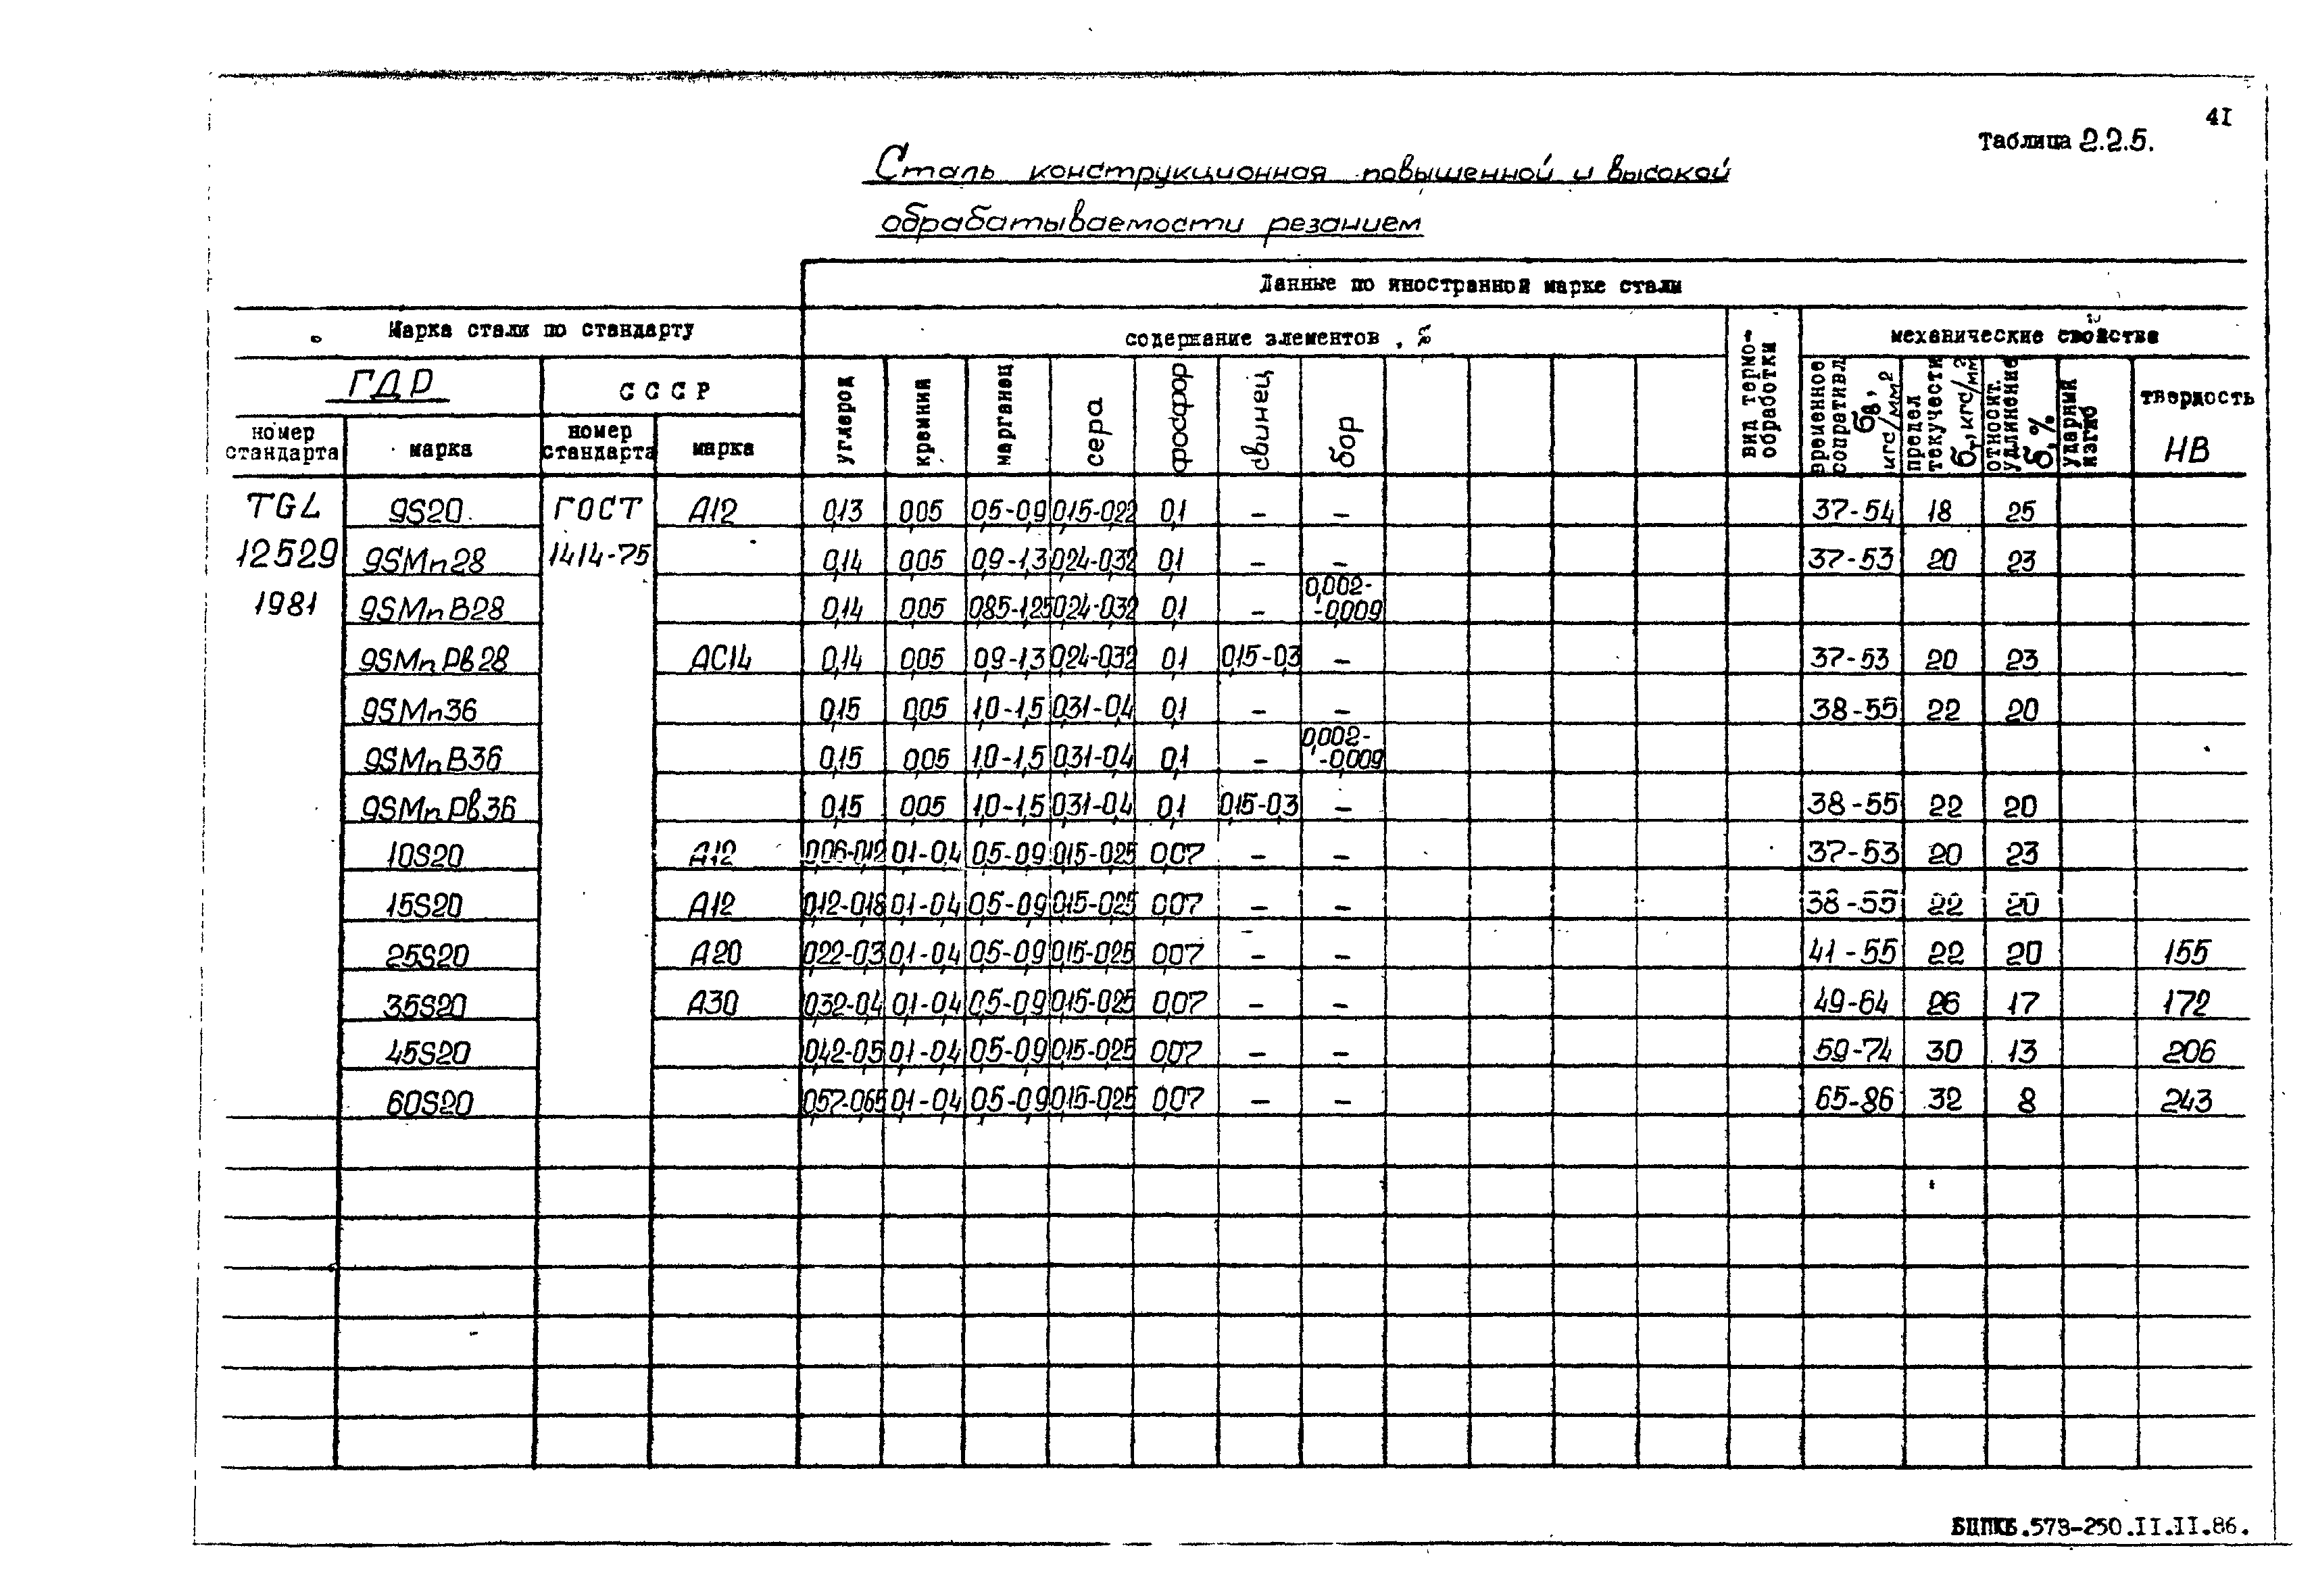 41
Таблица 2.2.5.
Сталь конструкционная повышенной и высокой
обрабатываемости резанием
Данные по иностранной марке стали
Марка стали по стандарту
содержание элементов, %
вид термо-
обработки
механические свойства
ГДР
СССР
углерод
кремний
марганец
сера
фосфор
свинец
бор
временное сопротивл. σв, кгс/мм2
предел текучести σт, кгс/мм2
относит. удлинение δ, %
ударный изгиб
твердость
НВ
номер стандарта
марка
номер стандарта
марка
TGL 9S20 ГОСТ А12 0,13 0,05 0,5-0,9 0,15-0,22 0,1 – – 37-54 18 25
12529 9SMn28 1414-75 0,14 0,05 0,9-1,3 0,24-0,32 0,1 – – 37-53 20 23
1981 9SMnB28 0,14 0,05 0,85-1,25 0,24-0,32 0,1 – 0,002-
-0,009
9SMnPb28 АС14 0,14 0,05 0,9-1,3 0,24-0,32 0,1 0,15-0,3 – 37-53 20 23
9SMn36 0,15 0,05 1,0-1,5 0,31-0,4 0,1 – – 38-55 22 20
9SMnB36 0,15 0,05 1,0-1,5 0,31-0,4 0,1 – 0,002-
-0,009
9SMnPb36 0,15 0,05 1,0-1,5 0,31-0,4 0,1 0,15-0,3 – 38-55 22 20
10S20 А12 0,06-0,12 0,1-0,4 0,5-0,9 0,15-0,25 0,07 – – 37-53 20 23
15S20 А12 0,12-0,18 0,1-0,4 0,5-0,9 0,15-0,25 0,07 – – 38-55 22 20
25S20 А20 0,22-0,3 0,1-0,4 0,5-0,9 0,15-0,25 0,07 – – 41-55 22 20 155
35S20 А30 0,32-0,4 0,1-0,4 0,5-0,9 0,15-0,25 0,07 – – 49-64 26 17 172
45S20 0,42-0,5 0,1-0,4 0,5-0,9 0,15-0,25 0,07 – – 59-74 30 13 206
60S20 0,57-0,65 0,1-0,4 0,5-0,9 0,15-0,25 0,07 – – 65-86 32 8 243
БЦПКБ.573-250.II.II.86.